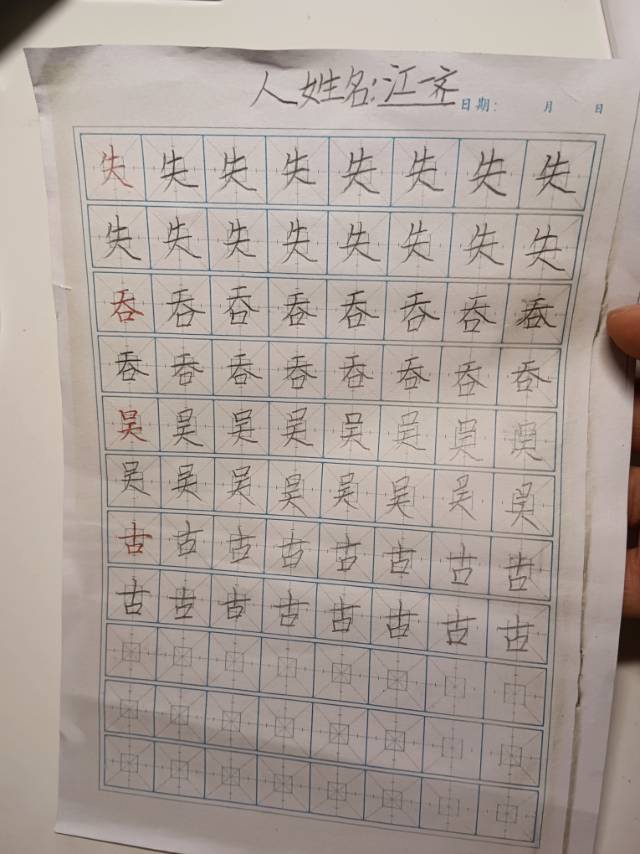 人姓名:江一齐 日期: 月 日
失失失失失失失失
失失失失失失失失
吞吞吞吞吞吞吞吞
吞吞吞吞吞吞吞吞
吴吴吴吴吴吴吴吴
吴吴吴吴吴吴吴吴
古古古古古古古古
古古古古古古古古